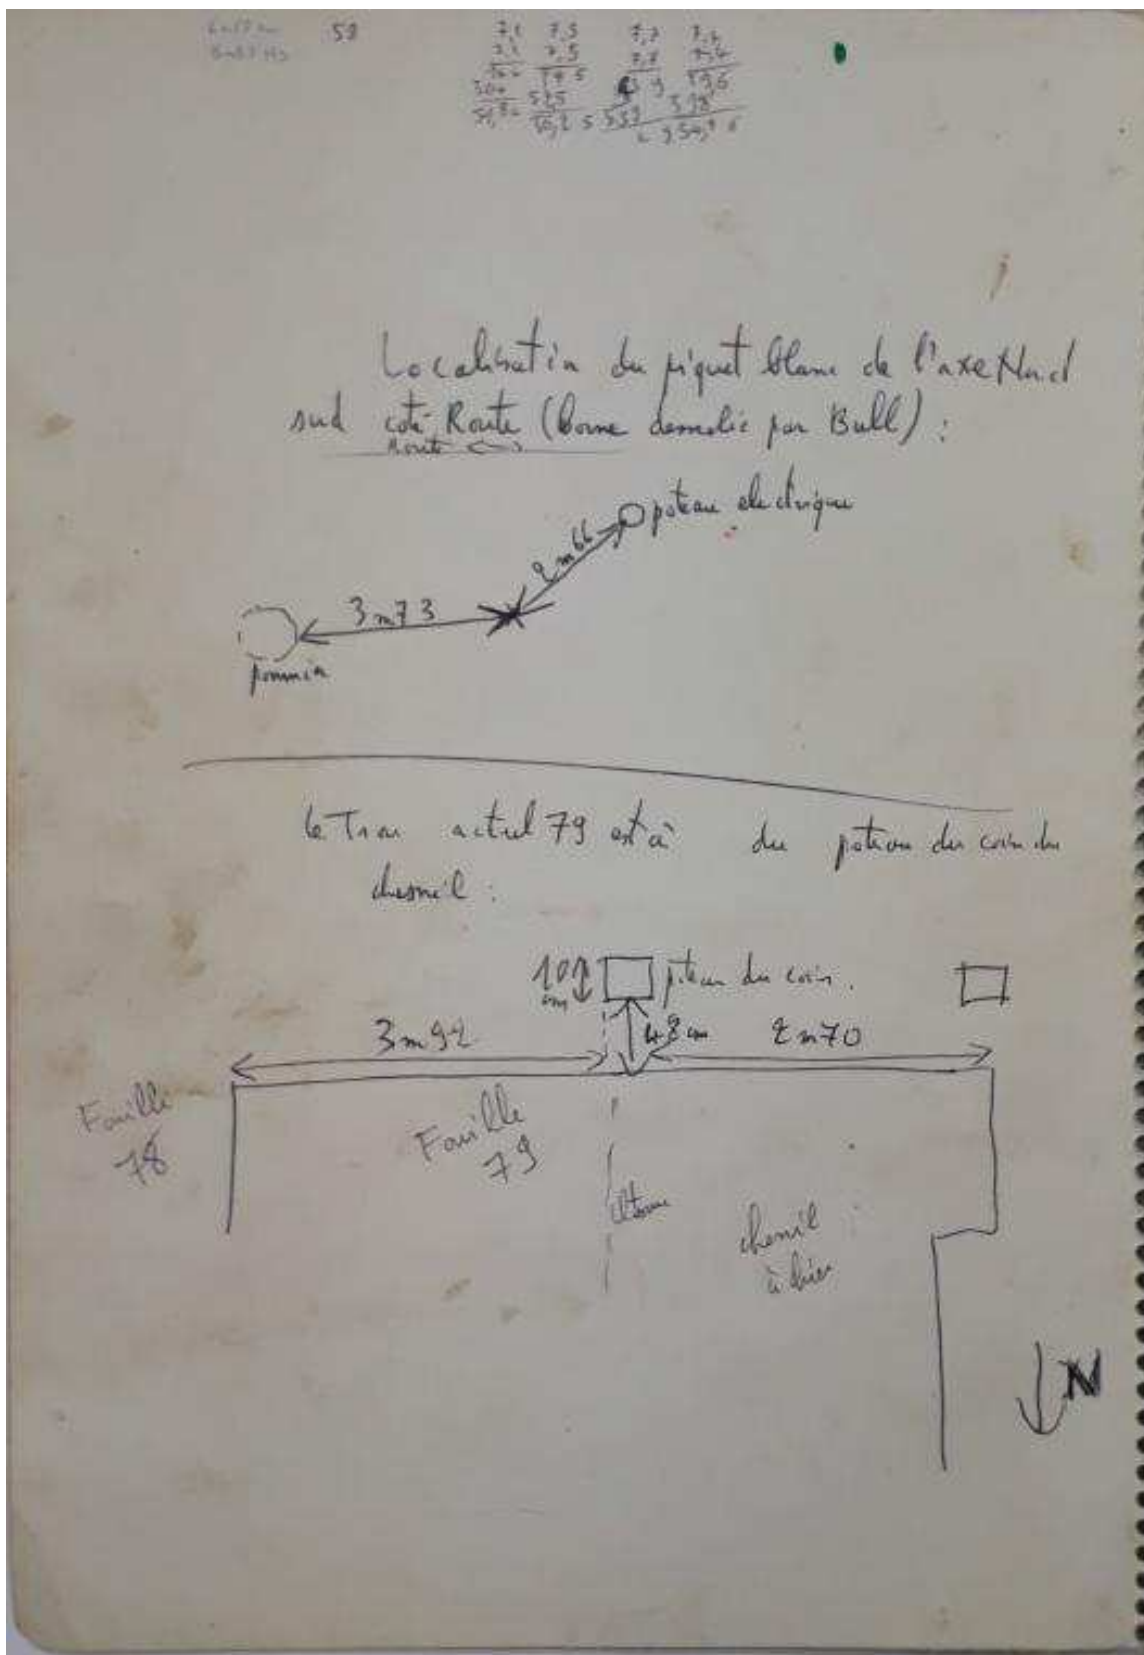 58
7,5
7,5
Localisation du piquet blanc de l'axe Nord
sud coté Route (borne demolie par Bull) :
Route
poteau electrique
2m66
3m73
pommier
le Trou actuel 79 est à du poteau du coin du
chesnil :
10 cm
poteau du coin.
3m92
48 cm
2m70
Fouille
78
Fouille
79
chenil
à chien
N